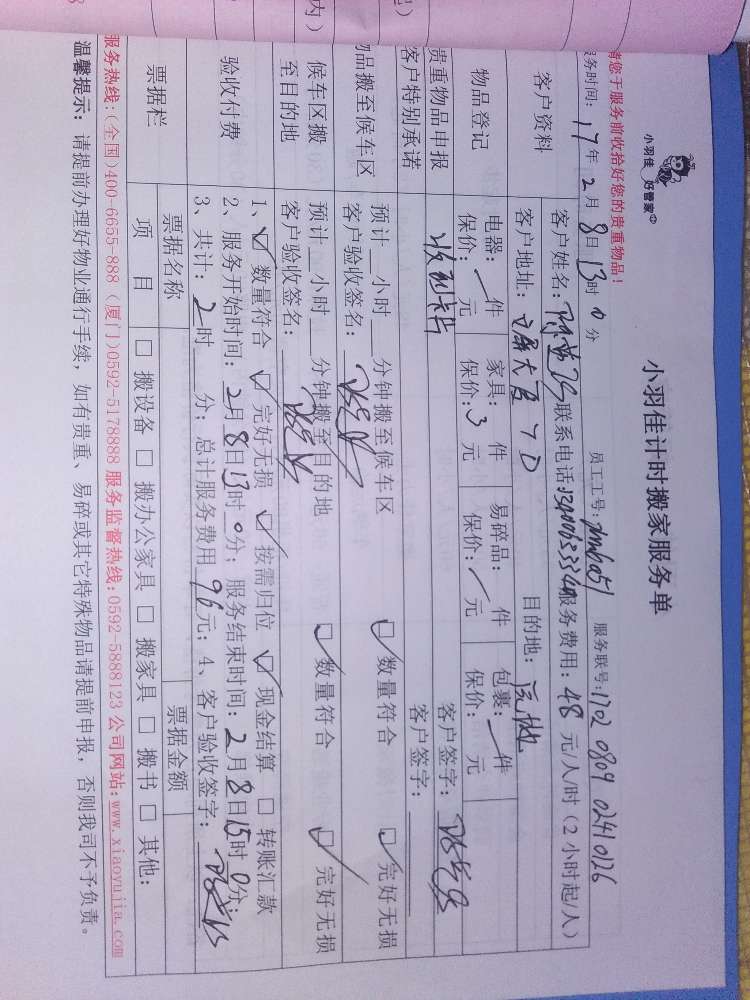 小羽佳 好管家
小羽佳计时搬家服务单
请您于服务前收拾好您的贵重物品!
服务时间: 17年2月8日13时0分 员工工号: 服务联号: 1702 0809 0241 0126
客户资料
客户姓名: 联系电话: 服务费用: 48 元/人/时 (2小时起/人)
客户地址: 7D 目的地:
物品登记
电器: 一件 家具: 件 易碎品: 件 包裹: 一件
保价: 元 保价: 3元 保价: 元 保价: 元
贵重物品申报 收到卡片 客户签字:
客户特别承诺 客户签字:
物品搬至候车区
预计 小时 分钟搬至候车区 ☑ 数量符合 ☑ 完好无损
客户验收签名:
候车区搬至目的地
预计 小时 分钟搬至目的地 ☑ 数量符合 ☑ 完好无损
客户验收签名:
验收付费
1、☑ 数量符合 ☑ 完好无损 ☑ 按需归位 ☑ 现金结算 ☐ 转账汇款
2、服务开始时间: 2月8日13时0分; 服务结束时间: 2月8日15时0分;
3、共计: 2时 分; 总计服务费用 96元; 4、客户验收签字:
票据栏
票据名称 票据金额
项 目 ☐ 搬设备 ☐ 搬办公家具 ☐ 搬家具 ☐ 搬书 ☐ 其他:
服务热线:(全国)400-6655-888 (厦门)0592-5178888 服务监督热线:0592-5888123 公司网站:www.xiaoyujia.com
温馨提示: 请提前办理好物业通行手续, 如有贵重、易碎或其它特殊物品请提前申报, 否则我司不予负责。